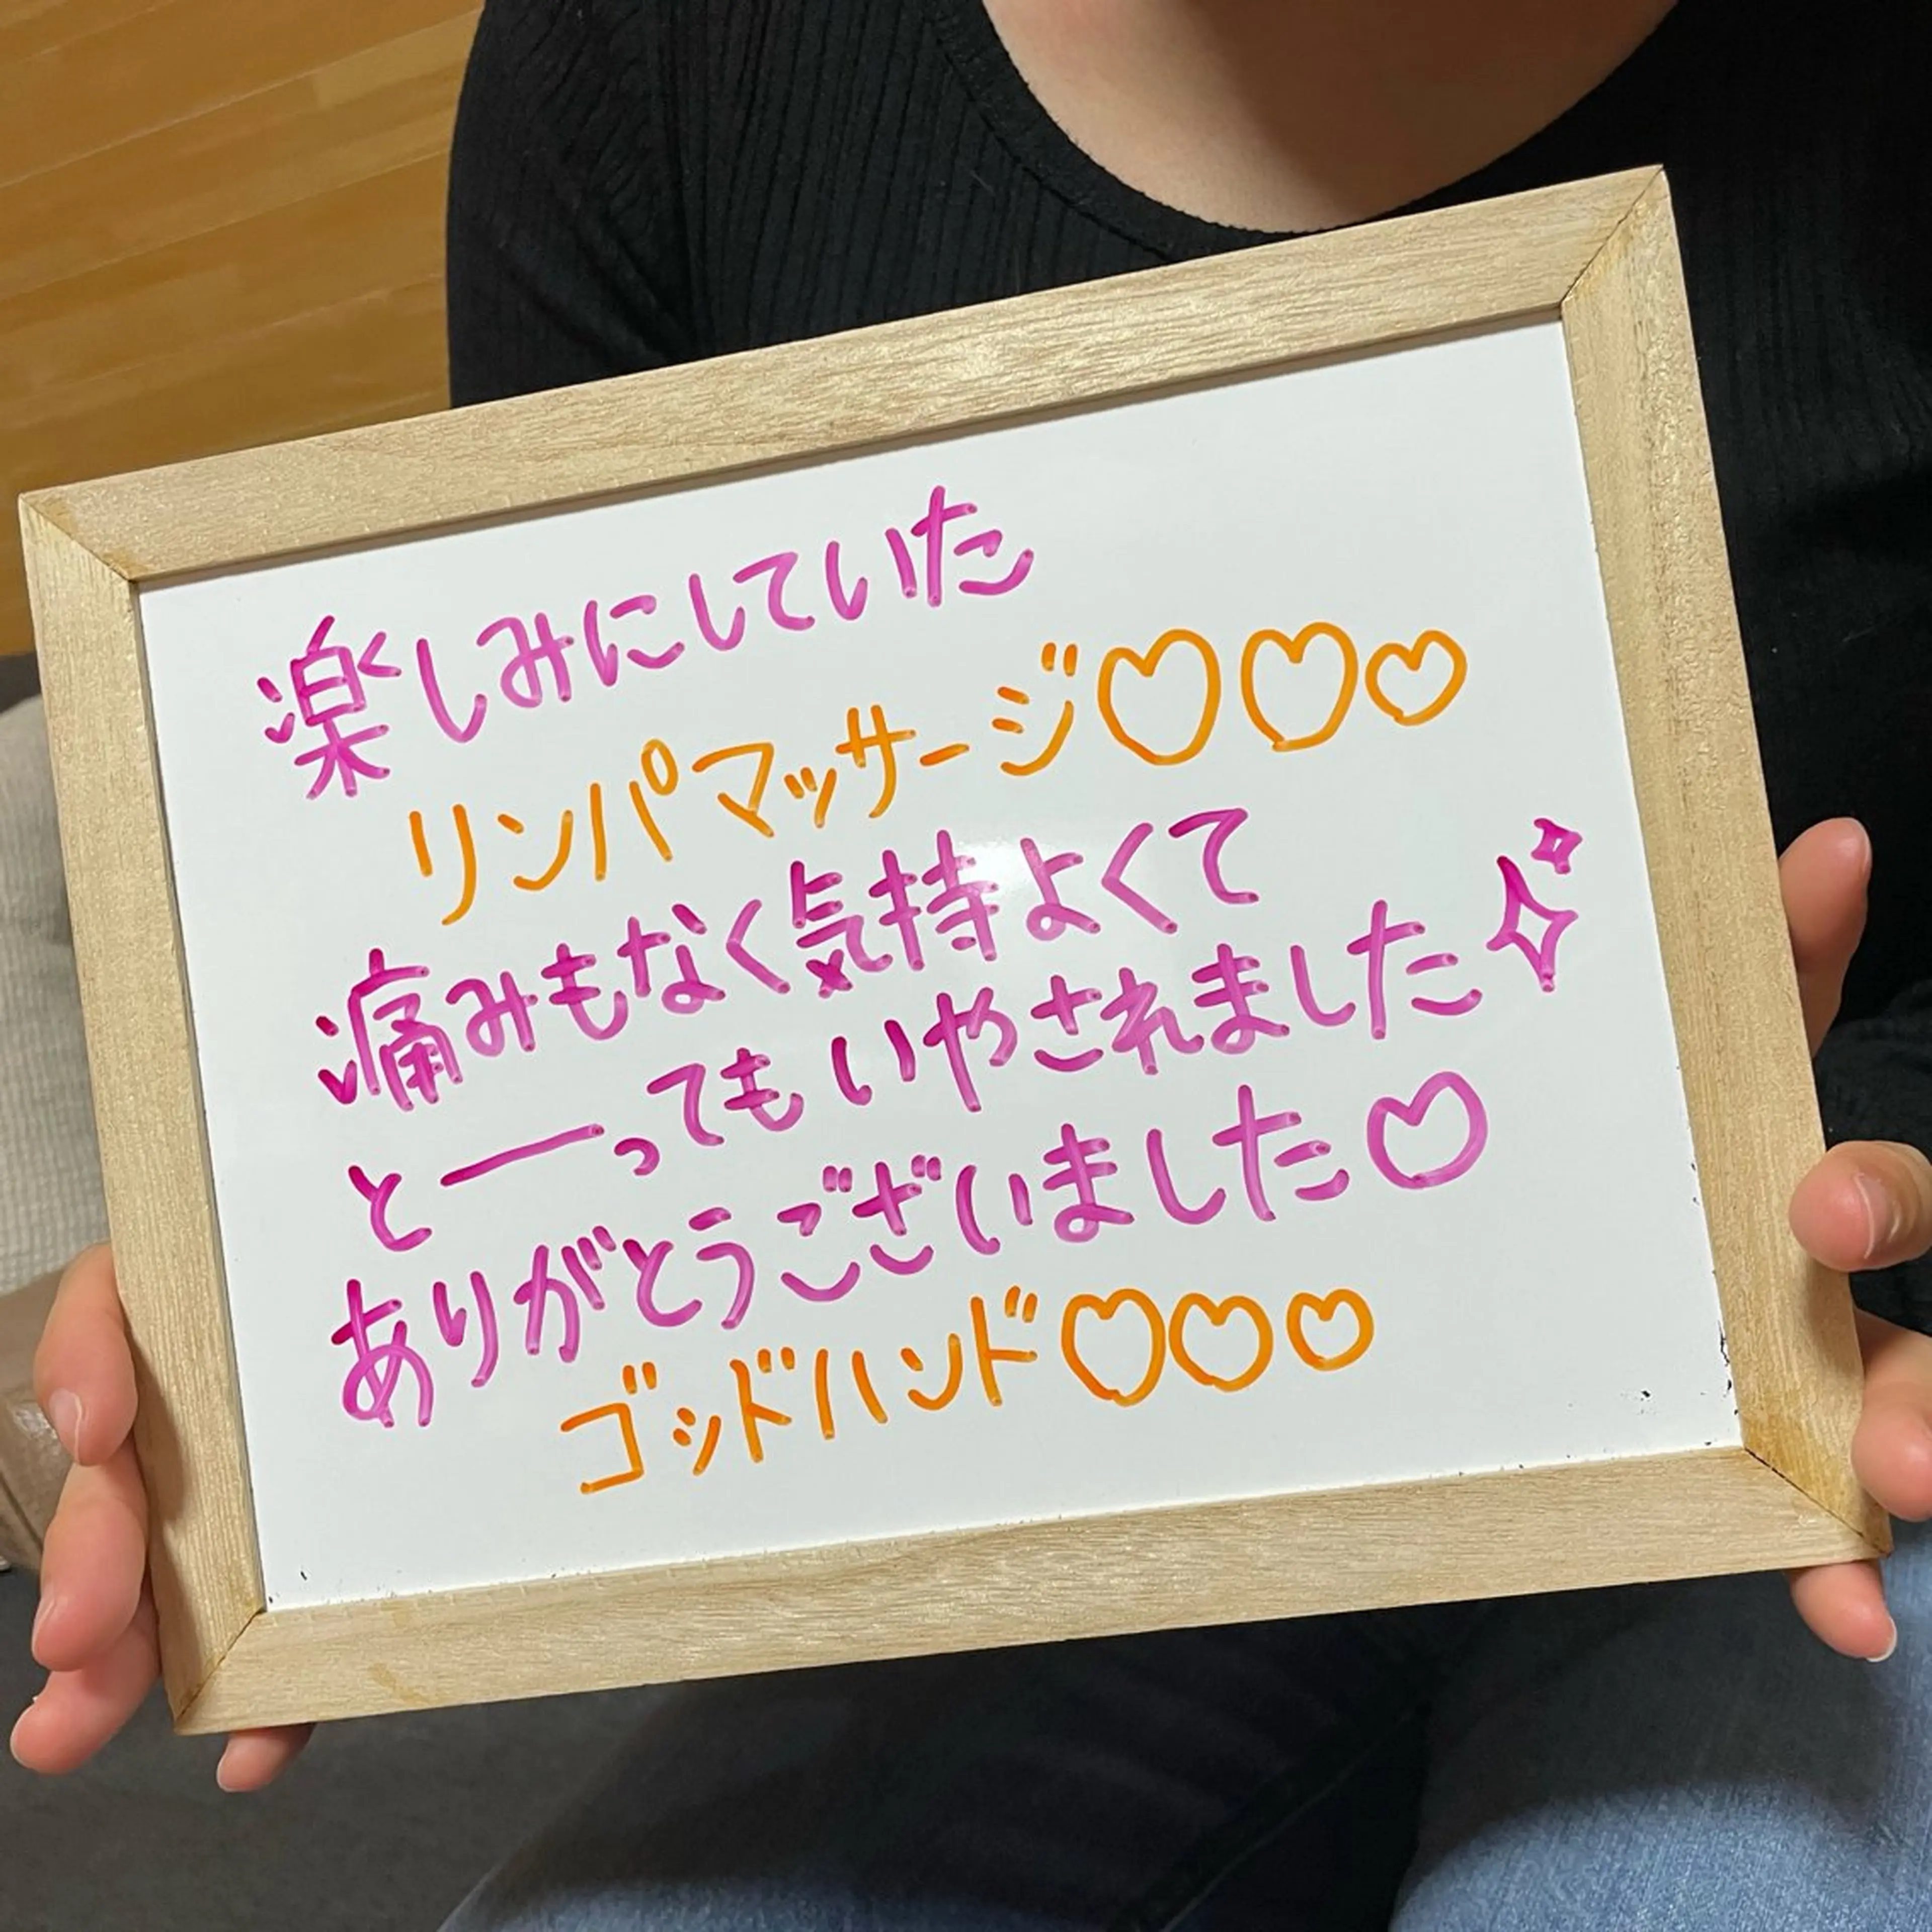 楽しみにしていた
リンパマッサージ♡♡♡
痛みもなく気持よくて
と一ってもいやされました✧✧
ありがとうございました♡
ゴッドハンド♡♡♡